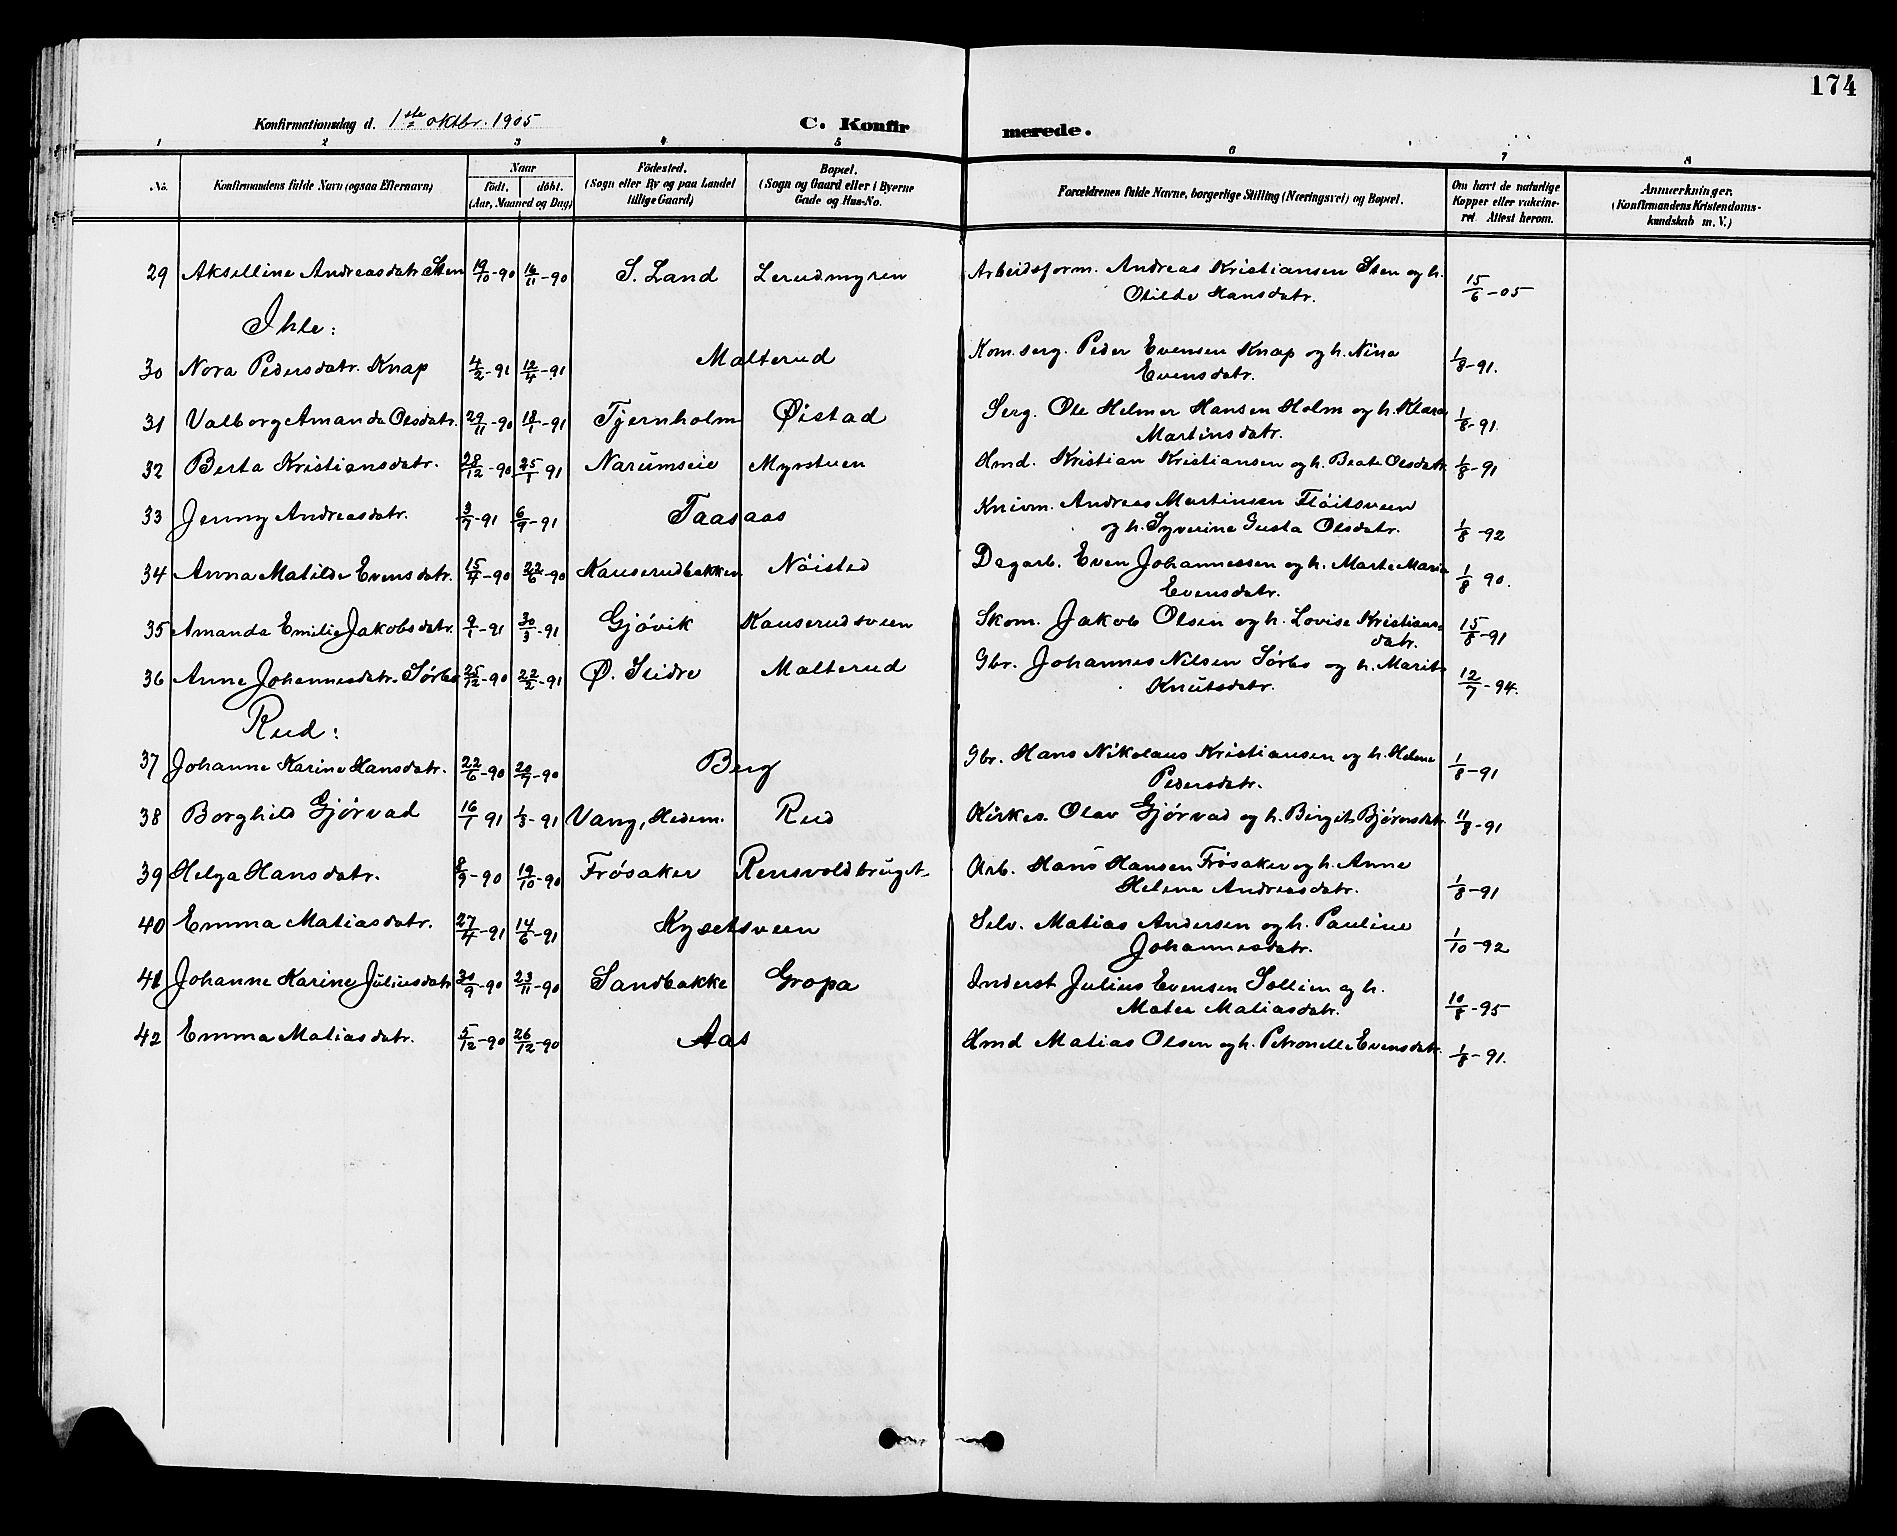 174
Konfirmationsdag d. 1ste oktbr. 1905
C. Konfirmerede.
1 2 3 4 5 6 7 8
No.
Konfirmandens fulde Navn (ogsaa Efternavn)
Naar
født. døbt.
(Aar, Maaned og Dag)
Fødested.
(Sogn eller By og paa Landet
tillige Gaard)
Bopæl.
(Sogn og Gaard eller i Byerne
Gade og Hus-No.
Forældrenes fulde Navne, borgerlige Stilling (Næringsvei) og Bopæl.
Om havt de naturlige
Kopper eller vakcine-
ret. Attest herom.
Anmærkninger.
(Konfirmandens Kristendoms-
kundskab m. V.)
29 Akselline Andreasdatr. Sten 19/10-90 16/11-90 S. Land Lerudmyren Arbeidsform. Andreas Kristiansen Sten og h. 15/6-05
Otilde Hansdatr.
Ihle:
30 Nora Pedersdatr. Knap 4/2-91 12/4-91 Malterud Kom. serg. Peder Evensen Knap og h. Nina 1/8-91.
Evensdatr.
31 Valborg Amanda Olsdatr. 29/11-90 18/1-91 Tjernholm Øistad Serg. Ole Helmer Hansen Holm og h. Klara 1/8-91.
Martinsdatr.
32 Berta Kristiansdatr. 28/12-90 25/1-91 Narumseie Myrstuen Hmd. Kristian Kristiansen og h. Beate Olsdatr. 1/8-91
33 Jenny Andreasdatr. 3/7-91 6/9-91 Taasaas Knivm. Andreas Martinsen Fløitsveen
og h. Syverine Gusta Olsdatr. 1/8-92
34 Anna Matilde Evensdatr. 15/4-90 22/6-90 Kauserudbakken Nøisted Dagarb. Even Johannessen og h. Marte Marie 1/8 90.
Evensdatr.
35 Amanda Emilie Jakobsdatr. 9/1-91 30/3-91 Gjøvik Kauserudsveen Skom. Jakob Olsen og h. Lovise Kristians- 15/8-91
datr.
36 Anne Johannesdatr. Sørbo 25/12-90 22/2-91 Ø. Slidre Malterud Gbr. Johannes Nilsen Sørbo og h. Marit 12/7-94.
Knutsdatr.
Rud:
37 Johanne Karine Hansdatr. 22/6-90 20/7-90 Berg Gbr. Hans Nikolaus Kristiansen og h. Helene 1/8-91
Pedersdatr.
38 Borghild Gjørvad 16/1 91 1/3-91 Vang, Hedem. Rud Kirkes. Olav Gjørvad og h. Birgit Bjørnsdatr. 11/8-91
39 Helga Hansdatr. 8/9-90 19/10-90 Frøsaker Rensvoldbruget Arb. Hans Hansen Frøsaker og h. Anne
Helene Andreasdatr. 1/8-91
40 Emma Matiasdatr. 27/4-91 14/6-91 Kysetsveen Selv. Matias Andersen og h. Pauline
Johannesdatr. 1/10-92
41 Johanne Karine Juliusdatr. 30/9-90 23/11-90 Sandbakke Gropa Inderst Julius Evensen Sollien og h.
Matea Matiasdatr. 10/8-95
42 Emma Matiasdatr. 5/12-90 26/12-90 Aas Hmd Matias Olsen og h. Petronelle Evensdatr. 1/8-91.